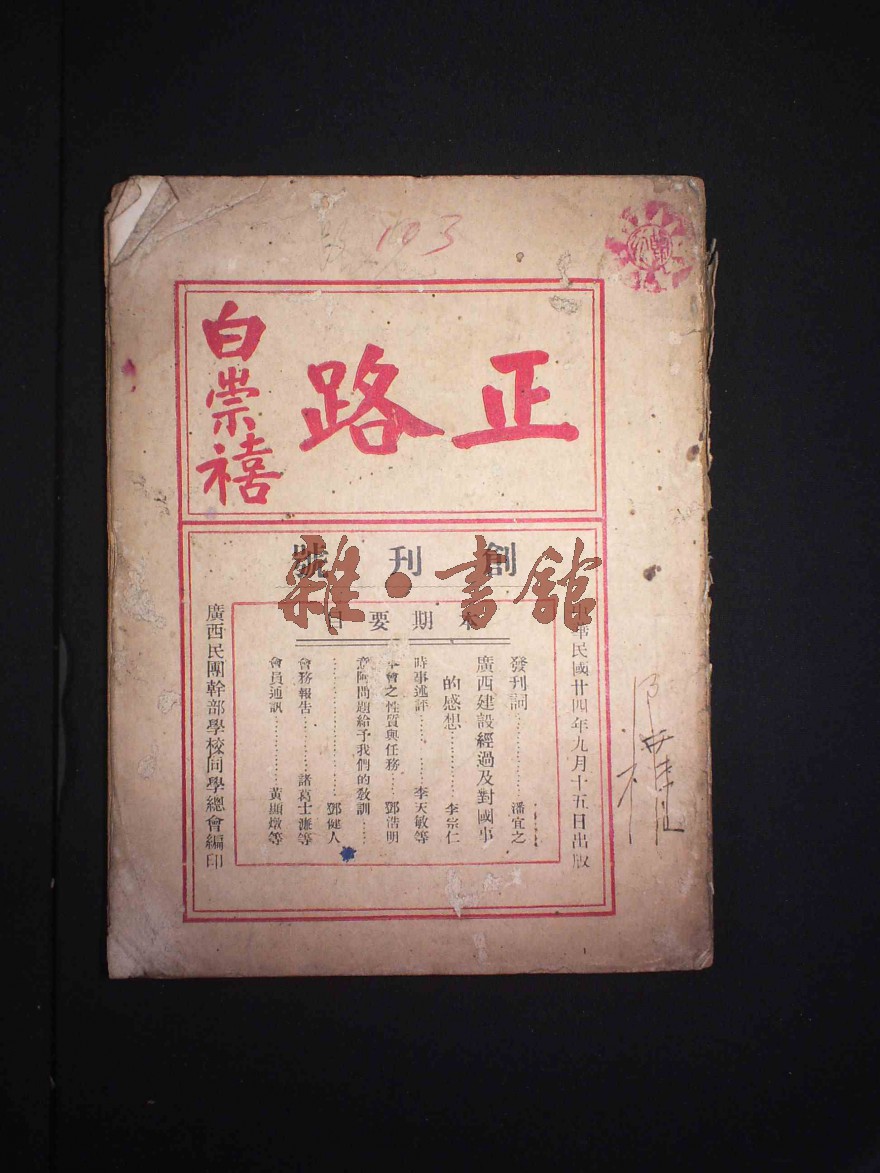 103
正路
白崇禧
創刊號
雜·書館
中華民國廿四年九月十五日出版
本期要目
發刊詞…………潘宜之
廣西建設經過及對國事
的感想…………李宗仁
時事述評………李天敏等
本會之性質與任務……鄧浩明
意阿問題給予我們的教訓……
……………鄧健人
會務報告…………諸葛士濂等
會員通訊…………黃顯燉等
廣西民團幹部學校同學總會編印